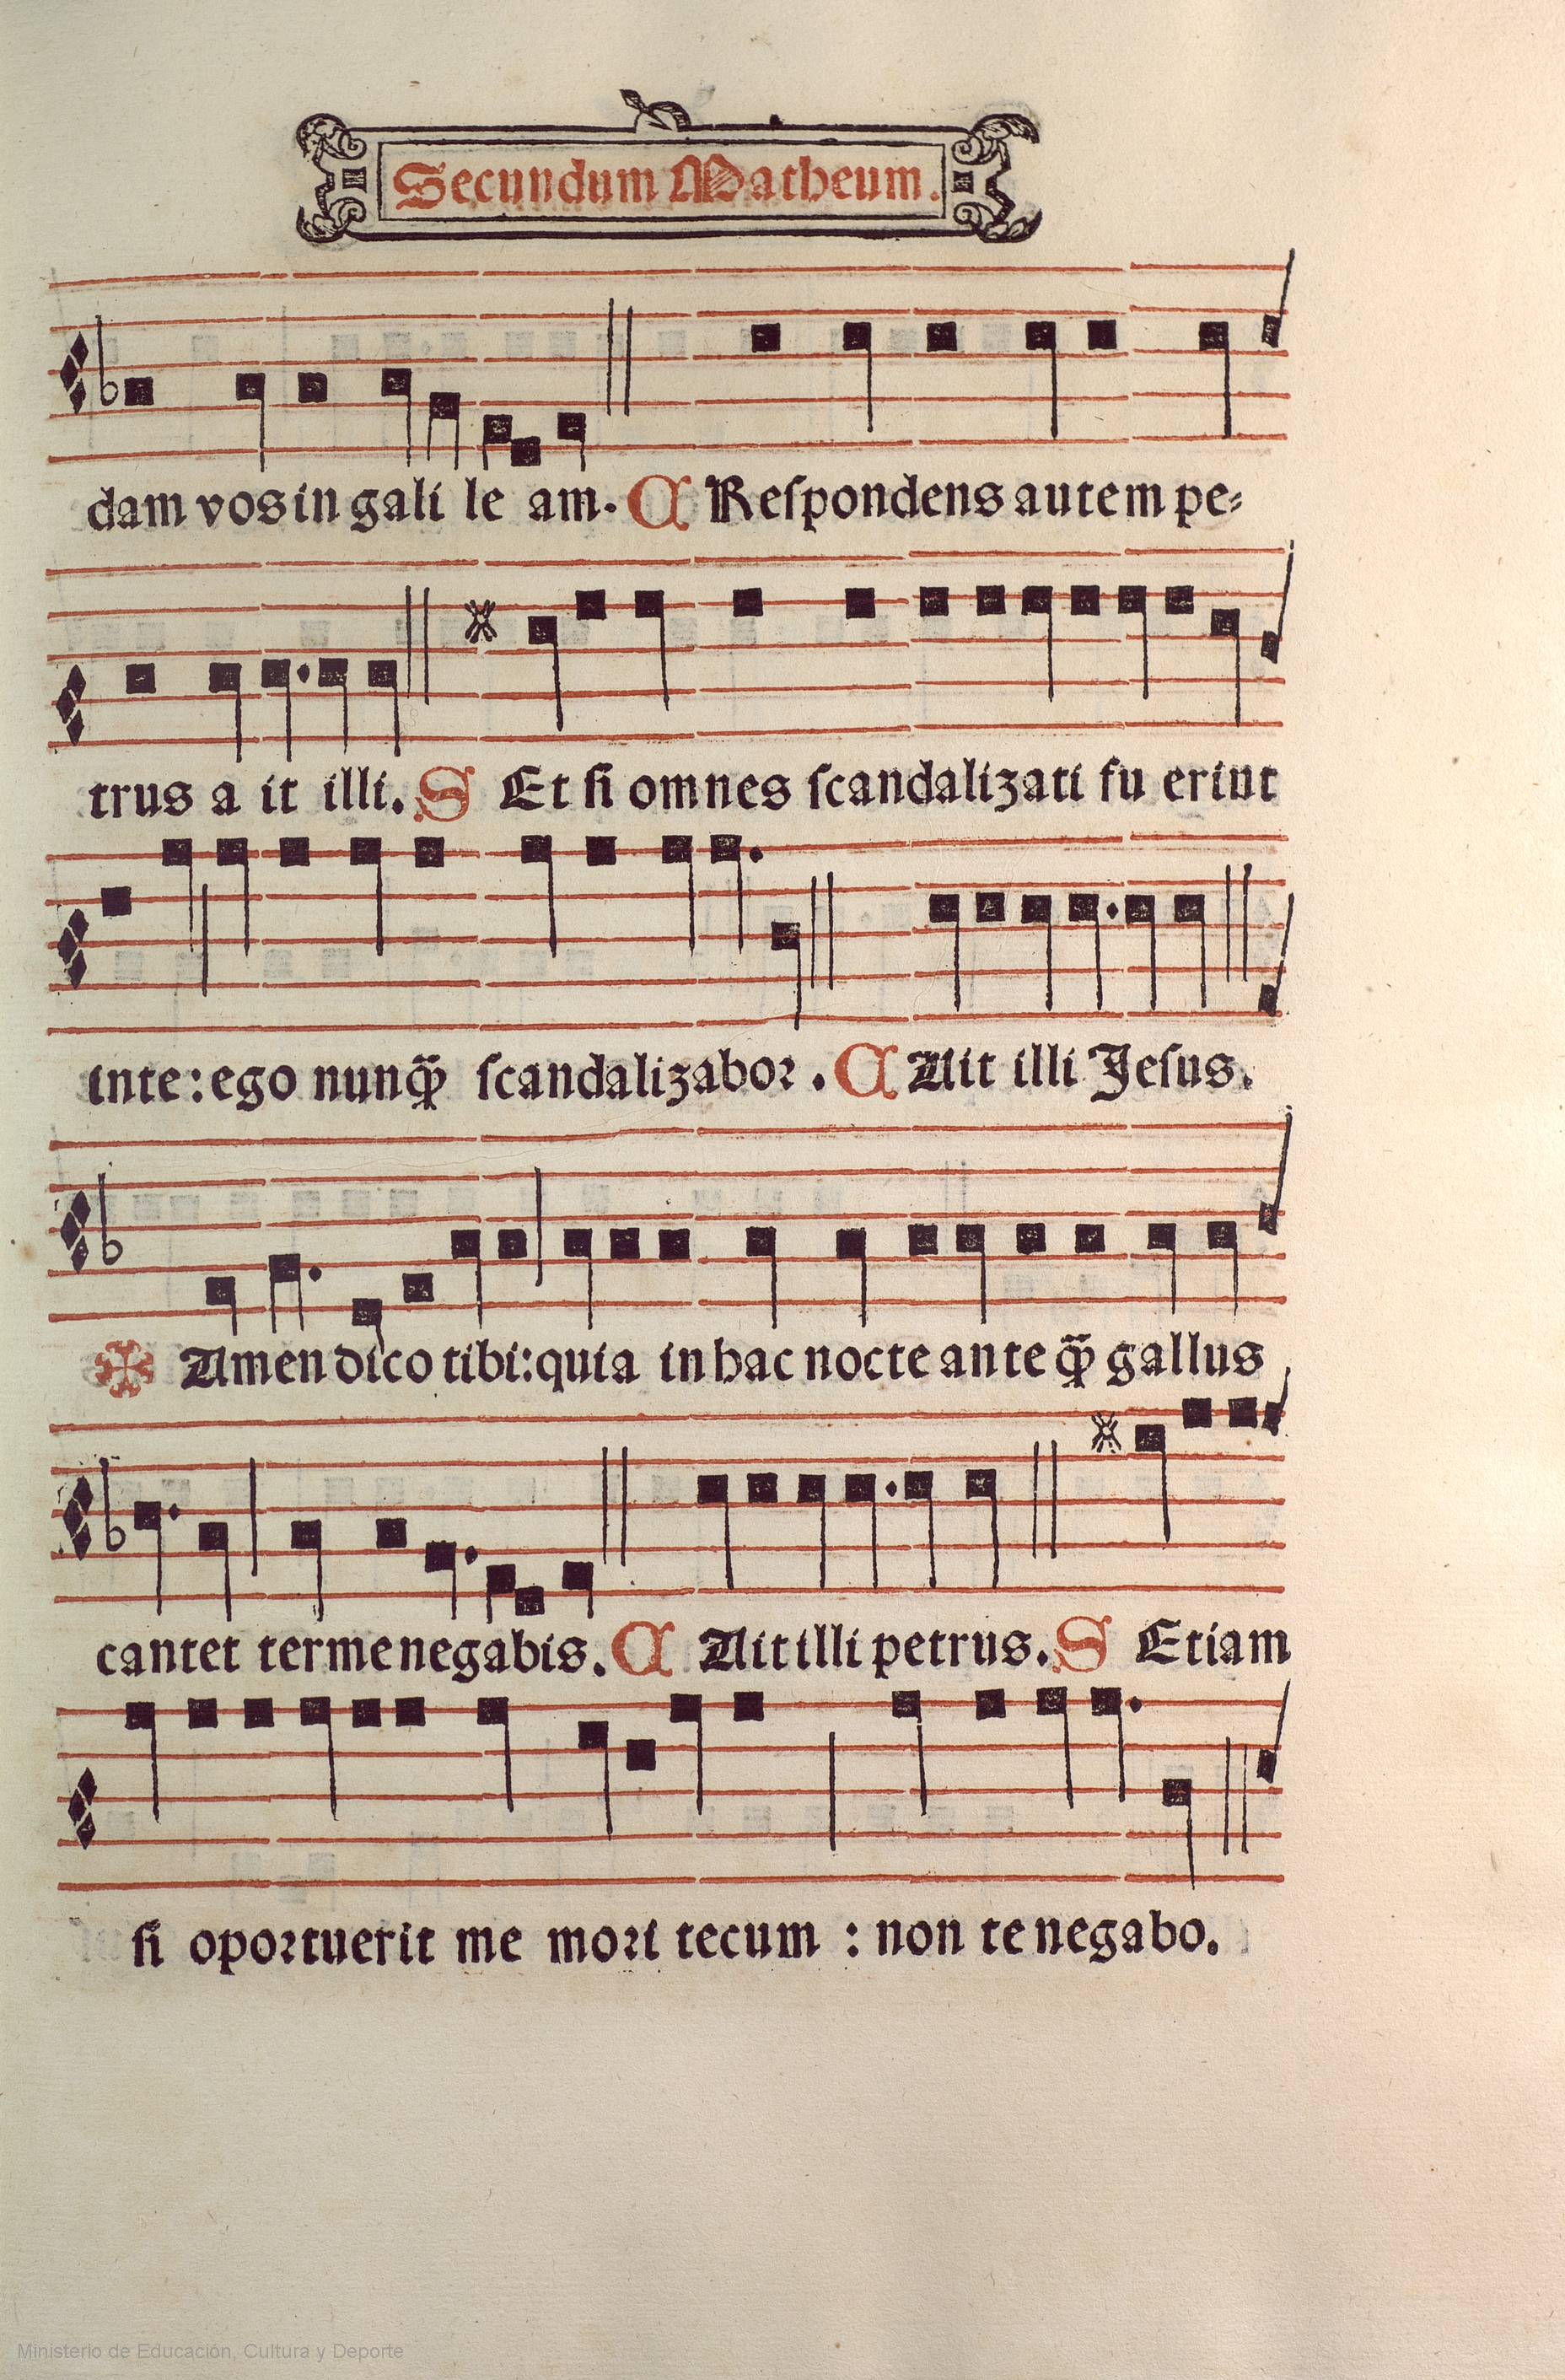 Secundum Matheum.
dam vos in gali le am. C Reſpondens autem pe⸗
trus a it illi. S Et ſi omnes ſcandaliʒati fu erint
inte: ego nunq̃ꝫ ſcandaliʒaboꝛ. C Ait illi Jeſus.
✠ Amen dico tibi: quia in hac nocte ante q̃ꝫ gallus
cantet ter me negabis. C Ait illi petrus. S Etiam
ſi opoꝛtuerit me moꝛi tecum : non te negabo.
Ministerio de Educación, Cultura y Deporte